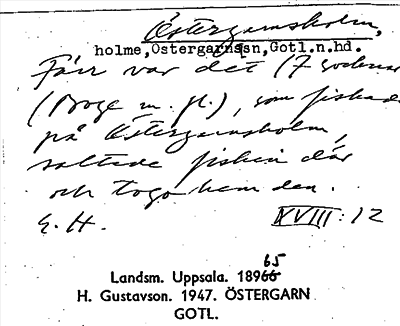 Östergarnsholm,
holme, Östergarnsn, Gotl.n.hd.
Förr var det 17 godema
(Boge m. fl.), som fiskade
på Östergarnsholm,
saltade fisken där
och togo hem den.
E. H. XVIII:12
65
Landsm. Uppsala. 18966
H. Gustavson. 1947. ÖSTERGARN
GOTL.